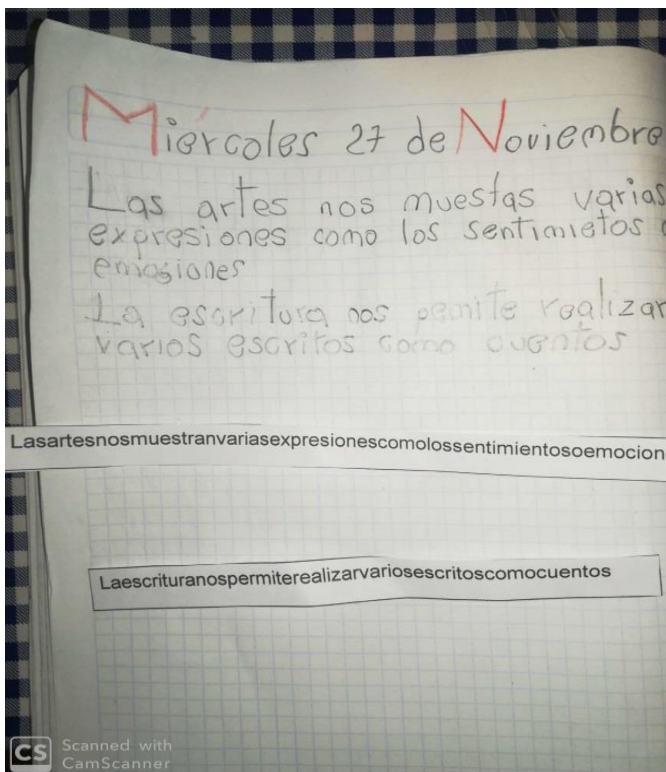 Miércoles 27 de Noviembre
Las artes nos muestas varias
expresiones como los sentimietos o
emosiones
La escritura nos pemite realizar
varios escritos como cuentos
Lasartesnosmuestranvariasexpresionescomolossentimientosoemocion
Laescrituranospermiterealizarvariosescritoscomocuentos
CS Scanned with
CamScanner